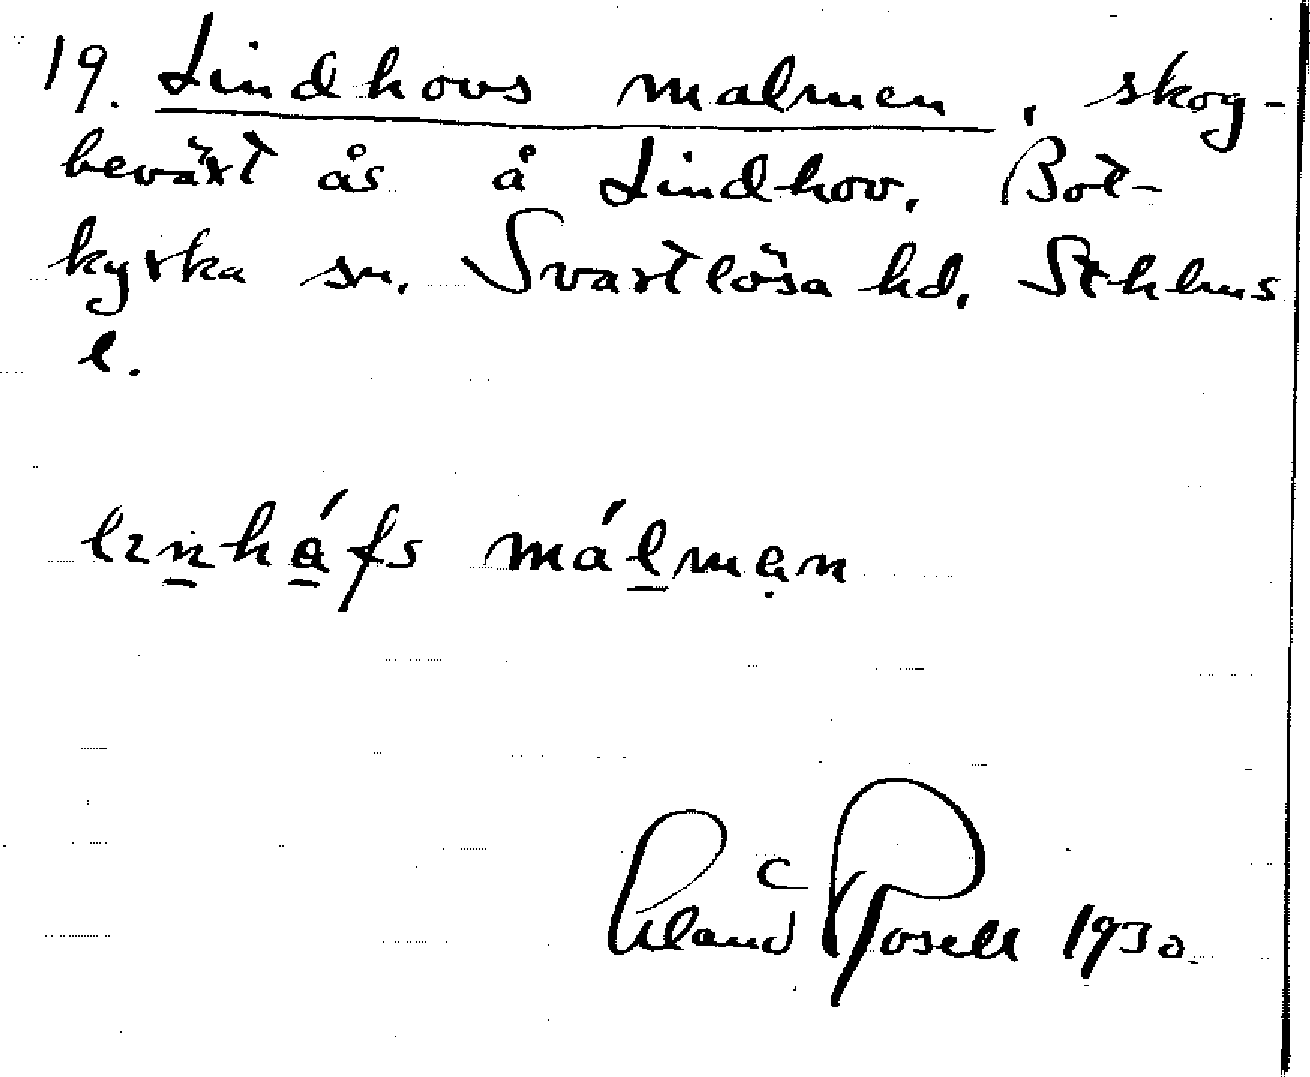 19. Lindhovs malmen, skog-
beväxt ås å Lindhov, Bot-
kyrka sn. Svartlösa hd. Sthlms
l.
lɪnháfs málmạn
Erland Rosell 1930.